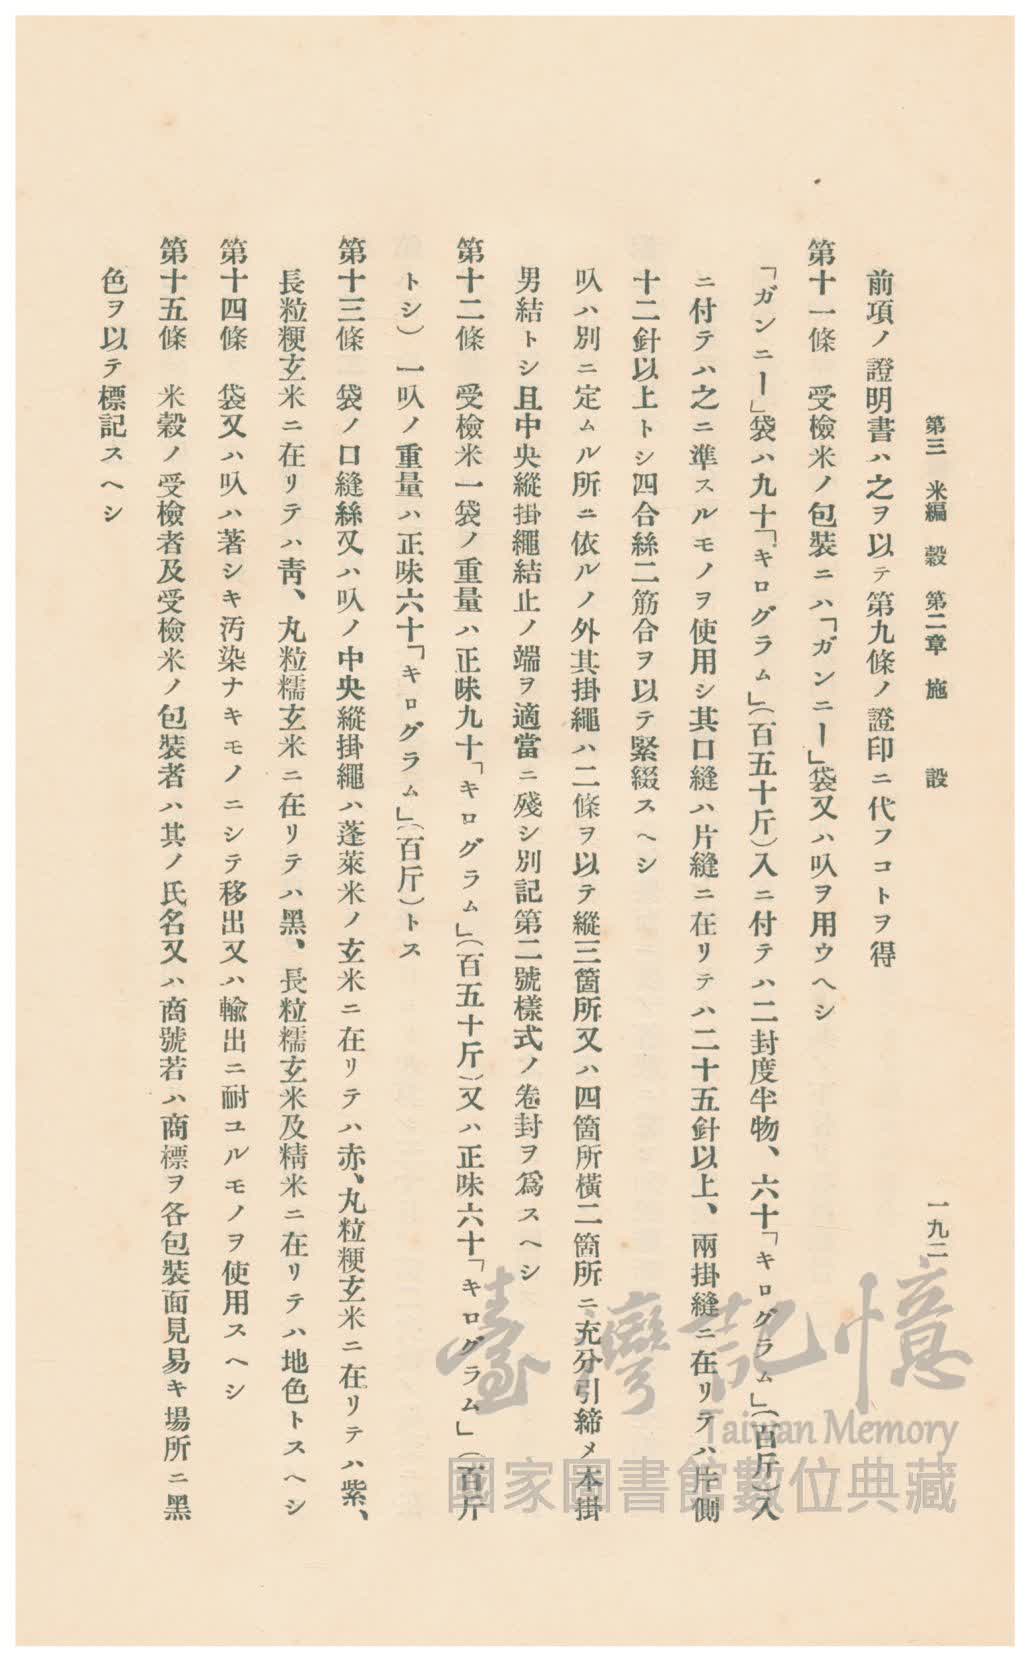 第三 米編 穀 第二章 施 設 一九二
前項ノ證明書ハ之ヲ以テ第九條ノ證印ニ代フコトヲ得
第十一條 受檢米ノ包裝ニハ「ガンニー」袋又ハ叺ヲ用ウヘシ
「ガンニー」袋ハ九十「キログラム」(百五十斤)入ニ付テハ二封度半物、六十「キログラム」(百斤)入
ニ付テハ之ニ準スルモノヲ使用シ其口縫ハ片縫ニ在リテハ二十五針以上、兩掛縫ニ在リテハ片側
十二針以上トシ四合絲二筋合ヲ以テ緊綴スヘシ
叺ハ別ニ定ムル所ニ依ルノ外其掛繩ハ二條ヲ以テ縱三箇所又ハ四箇所橫二箇所ニ充分引締メ本掛
男結トシ且中央縱掛繩結止ノ端ヲ適當ニ殘シ別記第二號樣式ノ卷封ヲ爲スヘシ
第十二條 受檢米一袋ノ重量ハ正味九十「キログラム」(百五十斤)又ハ正味六十「キログラム」(百斤
トシ)一叺ノ重量ハ正味六十「キログラム」(百斤)トス
第十三條 袋ノ口縫絲又ハ叺ノ中央縱掛繩ハ蓬萊米ノ玄米ニ在リテハ赤、丸粒粳玄米ニ在リテハ紫、
長粒粳玄米ニ在リテハ靑、丸粒糯玄米ニ在リテハ黑、長粒糯玄米及精米ニ在リテハ地色トスヘシ
第十四條 袋又ハ叺ハ著シキ汚染ナキモノニシテ移出又ハ輸出ニ耐ユルモノヲ使用スヘシ
第十五條 米穀ノ受檢者及受檢米ノ包裝者ハ其ノ氏名又ハ商號若ハ商標ヲ各包裝面見易キ場所ニ黑
色ヲ以テ標記スヘシ
臺灣記憶
Taiwan Memory
國家圖書館數位典藏